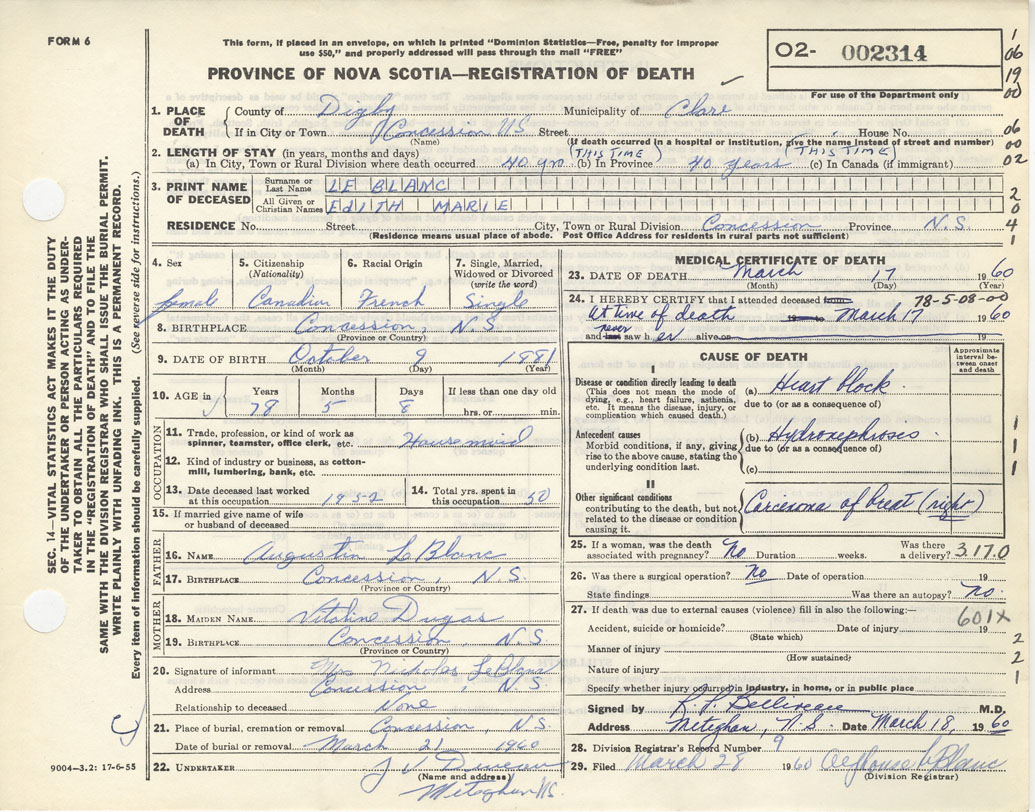 FORM 6
This form, if placed in an envelope, on which is printed "Dominion Statistics—Free, penalty for improper
use $50," and properly addressed will pass through the mail "FREE"
PROVINCE OF NOVA SCOTIA—REGISTRATION OF DEATH
02- 002314
For use of the Department only
1
06
19
00
06
00
02
2
0
4
1
SEC. 14—VITAL STATISTICS ACT MAKES IT THE DUTY
OF THE UNDERTAKER OR PERSON ACTING AS UNDER-
TAKER TO OBTAIN ALL THE PARTICULARS REQUIRED
IN THE "REGISTRATION OF DEATH" AND TO FILE THE
SAME WITH THE DIVISION REGISTRAR WHO SHALL ISSUE THE BURIAL PERMIT.
WRITE PLAINLY WITH UNFADING INK. THIS IS A PERMANENT RECORD.
Every item of information should be carefully supplied. (See reverse side for instructions.)
1. PLACE OF DEATH
County of Digby Municipality of Clare
If in City or Town Concession NS Street House No.
(Name) (If death occurred in a hospital or institution, give the name instead of street and number)
2. LENGTH OF STAY (in years, months and days) (THIS TIME) (THIS TIME)
(a) In City, Town or Rural Division where death occurred 40 yrs (b) In Province 40 years (c) In Canada (if immigrant)
3. PRINT NAME OF DECEASED
Surname or Last Name LE BLANC
All Given or Christian Names EDITH MARIE
RESIDENCE No. Street City, Town or Rural Division Concession Province N.S.
(Residence means usual place of abode. Post Office Address for residents in rural parts not sufficient)
4. Sex female
5. Citizenship (Nationality) Canadian
6. Racial Origin French
7. Single, Married, Widowed or Divorced (write the word) Single
8. BIRTHPLACE Concession, N.S.
(Province or Country)
9. DATE OF BIRTH October 9 1881
(Month) (Day) (Year)
10. AGE in Years 78 Months 5 Days 8 If less than one day old hrs. or min.
OCCUPATION
11. Trade, profession, or kind of work as spinner, teamster, office clerk, etc. House maid
12. Kind of industry or business, as cotton-mill, lumbering, bank, etc.
13. Date deceased last worked at this occupation 1952
14. Total yrs. spent in this occupation 50
15. If married give name of wife or husband of deceased
FATHER
16. NAME Augustin LeBlanc
17. BIRTHPLACE Concession, N.S.
(Province or Country)
MOTHER
18. MAIDEN NAME Vitaline Dugas
19. BIRTHPLACE Concession, N.S.
(Province or Country)
20. Signature of informant Mrs Nicholas LeBlanc
Address Concession, N.S.
Relationship to deceased None
21. Place of burial, cremation or removal Concession, N.S.
Date of burial or removal March 21 1960
22. UNDERTAKER
(Name and address)
Meteghan NS.
9004—3.2: 17-6-55
MEDICAL CERTIFICATE OF DEATH
23. DATE OF DEATH March 17 1960
(Month) (Day) (Year)
24. I HEREBY CERTIFY that I attended deceased from 78-5-08-00
At time of death 19 to March 17 1960
and last never saw h er alive on 19
CAUSE OF DEATH
Approximate interval between onset and death
I
Disease or condition directly leading to death
(This does not mean the mode of dying, e.g., heart failure, asthenia, etc. It means the disease, injury, or complication which caused death.)
(a) Heart block
due to (or as a consequence of)
Antecedent causes
Morbid conditions, if any, giving rise to the above cause, stating the underlying condition last.
(b) Hydronephrosis
due to (or as a consequence of)
(c)
1
1
1
II
Other significant conditions
contributing to the death, but not related to the disease or condition causing it.
Carcinoma of breast (right)
25. If a woman, was the death associated with pregnancy? No Duration weeks. Was there a delivery? 317.0
26. Was there a surgical operation? No Date of operation 19
State findings Was there an autopsy? No.
27. If death was due to external causes (violence) fill in also the following:— 601X
Accident, suicide or homicide? Date of injury 19
(State which)
Manner of injury
(How sustained)
Nature of injury
2
2
1
Specify whether injury occurred in industry, in home, or in public place
Signed by Belliveau M.D.
Address Meteghan, N.S. Date March 18, 1960
28. Division Registrar's Record Number 9
29. Filed March 28 1960 Alphonse LeBlanc
(Division Registrar)